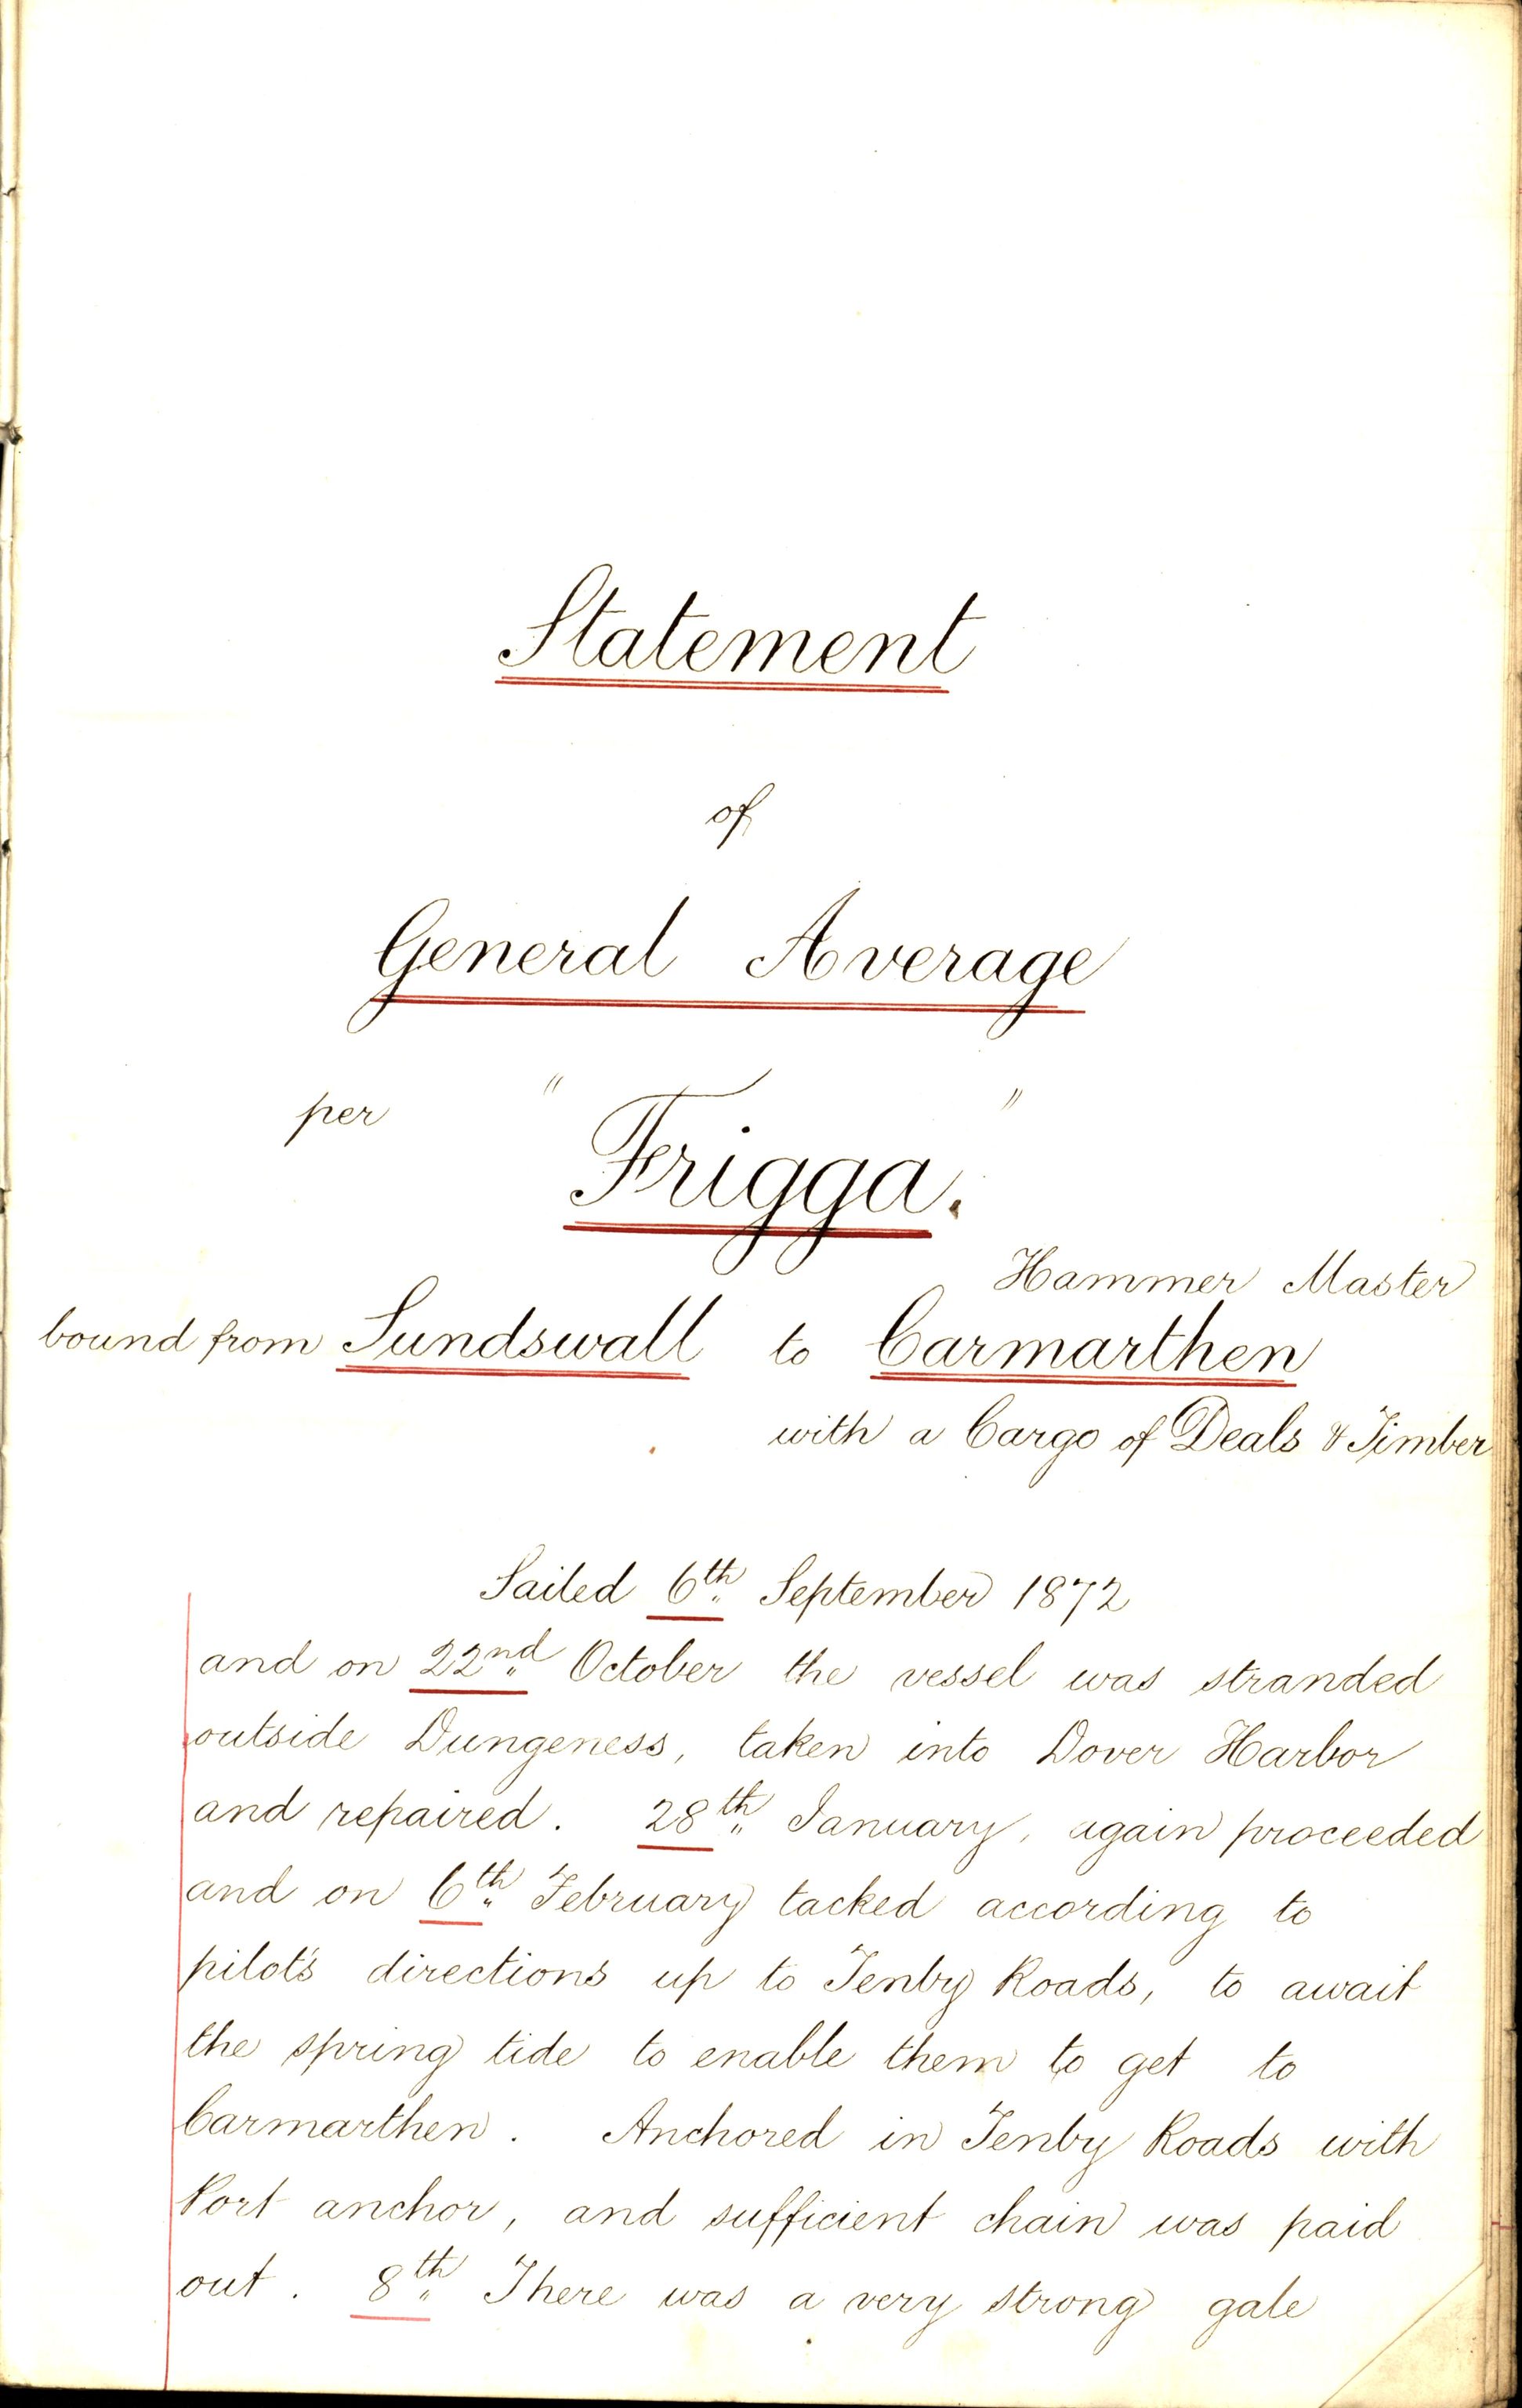 Statement
of
General Average
per "Frigga."
Hammer Master
bound from Sundswall to Carmarthen
with a Cargo of Deals & Timber
Sailed 6th September 1872
and on 22nd October the vessel was stranded
outside Dungeness, taken into Dover Harbor
and repaired. 28th January, again proceeded
and on 6th February tacked according to
pilot's directions up to Tenby Roads, to await
the spring tide to enable them to get to
Carmarthen. Anchored in Tenby Roads with
Port anchor, and sufficient chain was paid
out. 8th There was a very strong gale